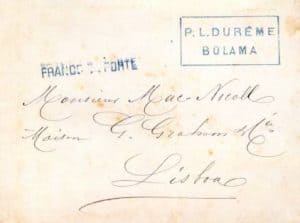 P. L. DURÊME
BÚLAMA
FRANCO PORTE
Monsieur Mac-Nicoll
Maison G. Graham & Cie
Lisboa